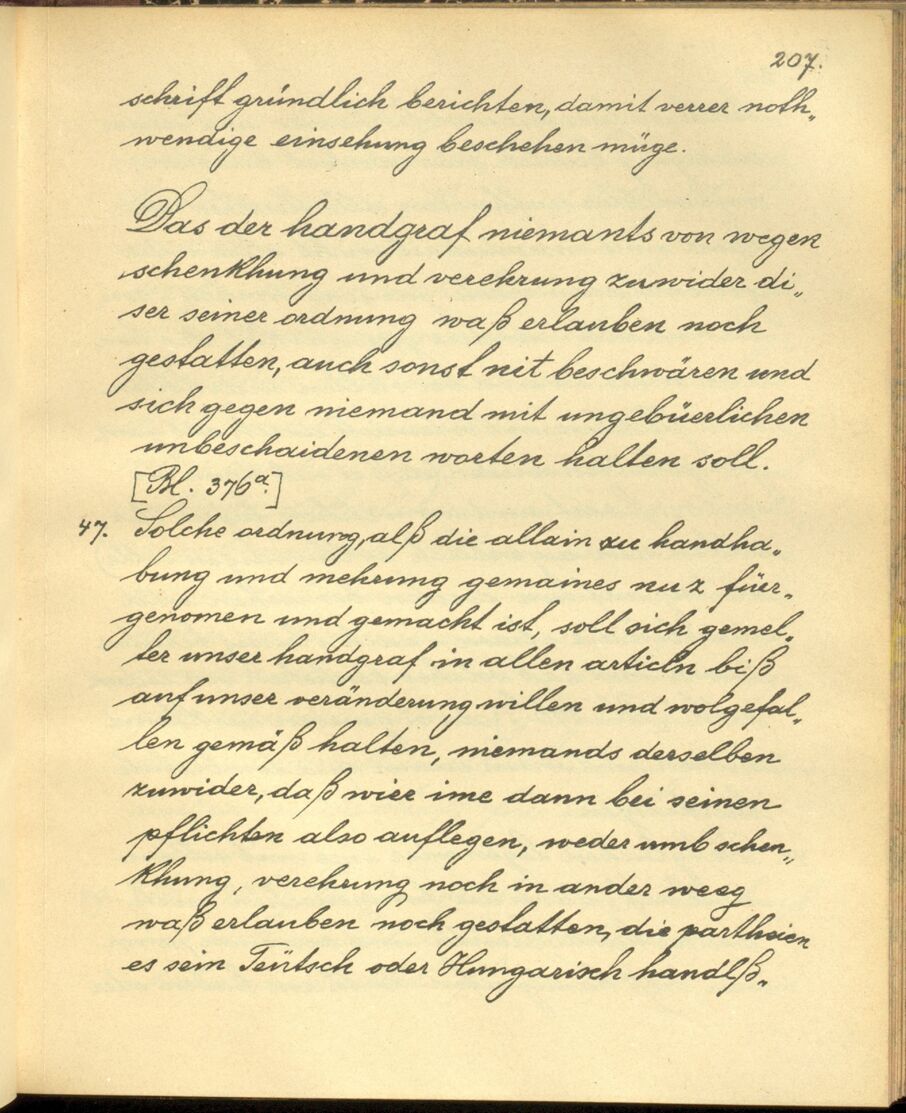 207.
schrift gründlich berichten, damit verrer noth„
wendige einsehung beschehen müge.
Das der handgraf niemants von wegen
schenkhung und verehrung zuwider di„
ser seiner ordnung waß erlauben noch
gestatten, auch sonst nit beschwären und
sich gegen niemand mit ungebüerlichen
unbeschaidenen worten halten soll.
[Bl. 376a.]
47. Solche ordnung, alß die allain zu handha„
bung und mehrung gemaines nuz füer„
genomen und gemacht ist, soll sich gemel„
ter unser handgraf in allen articln biß
auf unser veränderung willen und wolgefal„
len gemäß halten, niemands derselben
zuwider, daß wier ime dann bei seinen
pflichten also auflegen, weder umb schen„
khung, verehrung noch in ander weeg
waß erlauben noch gestatten, die partheien
es sein Teütsch oder Hungarisch handlß„